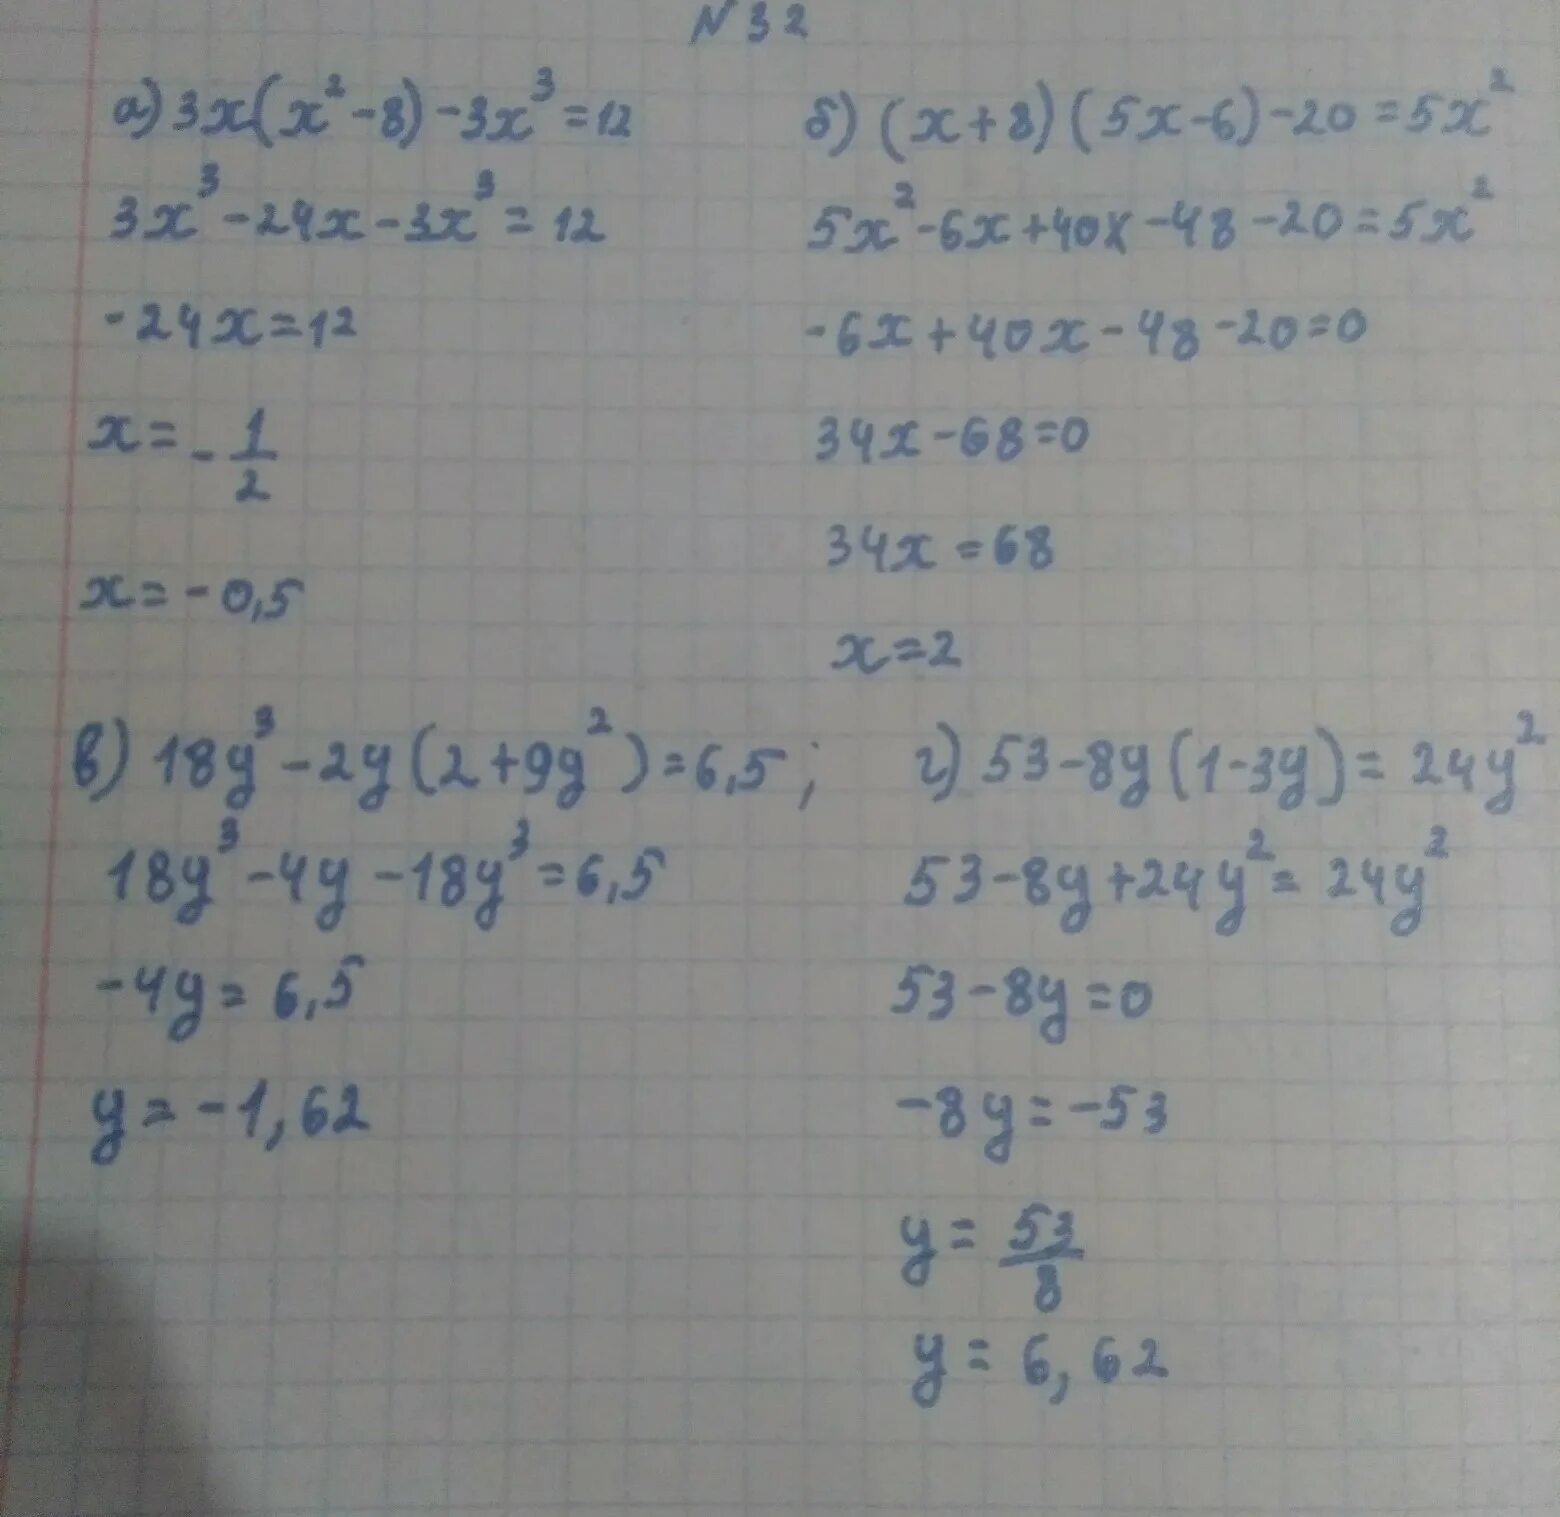 N 32
а) 3x(x² - 8) - 3x³ = 12
3x³ - 24x - 3x³ = 12
-24x = 12
x = - 1/2
x = - 0,5
б) (x + 8)(5x - 6) - 20 = 5x²
5x² - 6x + 40x - 48 - 20 = 5x²
- 6x + 40x - 48 - 20 = 0
34x - 68 = 0
34x = 68
x = 2
в) 18y³ - 2y(2 + 9y²) = 6,5;
18y³ - 4y - 18y³ = 6,5
-4y = 6,5
y = -1,62
г) 53 - 8y(1 - 3y) = 24y²
53 - 8y + 24y² = 24y²
53 - 8y = 0
-8y = -53
y = 53/8
y = 6,62